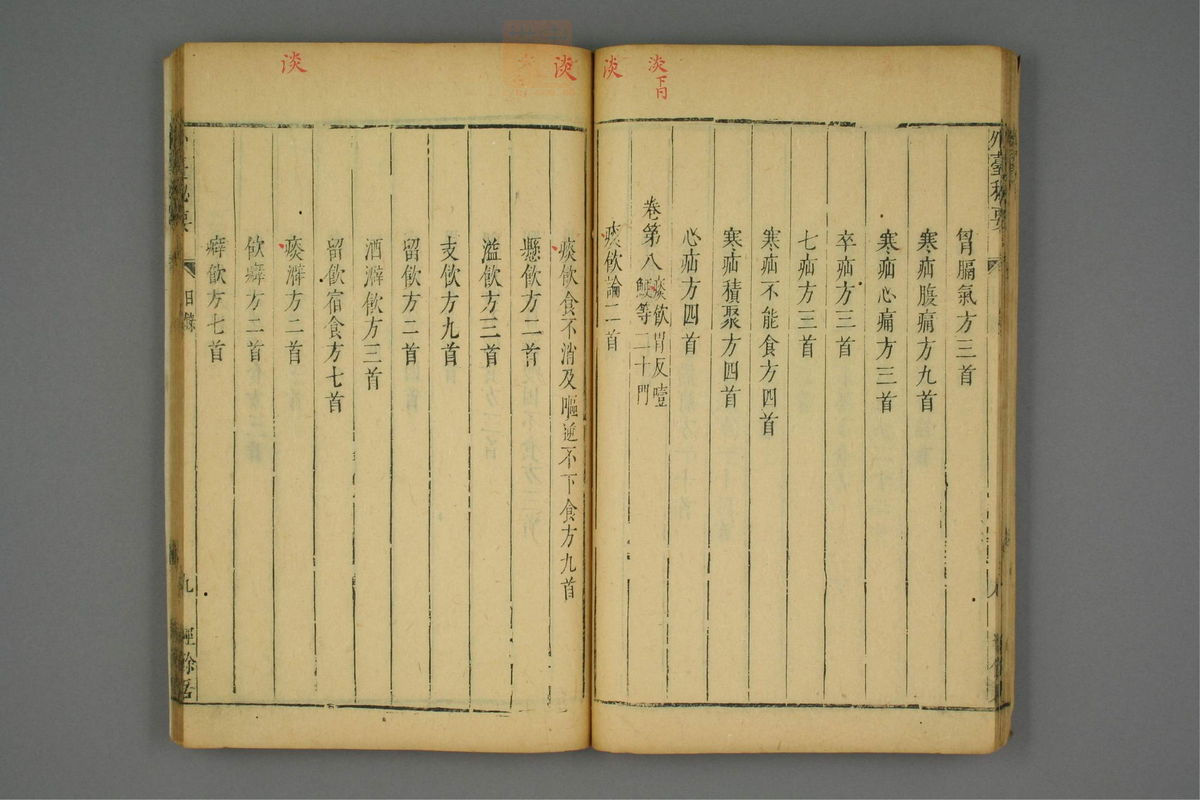 淡下同
淡
淡
淡
外臺秘要
胷膈氣方三首
寒疝腹痛方九首
寒疝心痛方三首
卒疝方三首
七疝方三首
寒疝不能食方四首
寒疝積聚方四首
心疝方四首
卷第八 痰飲胃反噎
鯁等二十門
痰飲論二首
痰飲食不消及嘔逆不下食方九首
懸飲方二首
溢飲方三首
支飲方九首
留飲方二首
酒澼飲方三首
留飲宿食方七首
痰澼方二首
飲癖方二首
癖飲方七首
臺秘要 目錄 九 經餘居